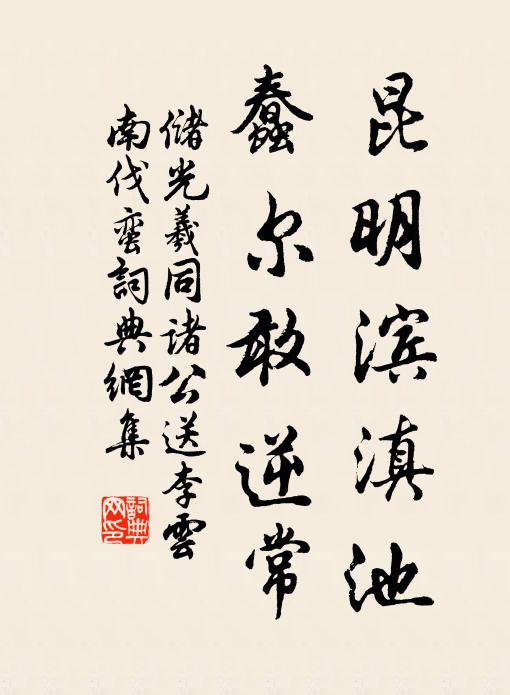 昆明滨滇池
蠢尔敢逆常
储光羲同诸公送李雲
南伐蛮詞典網集
詞典
网印